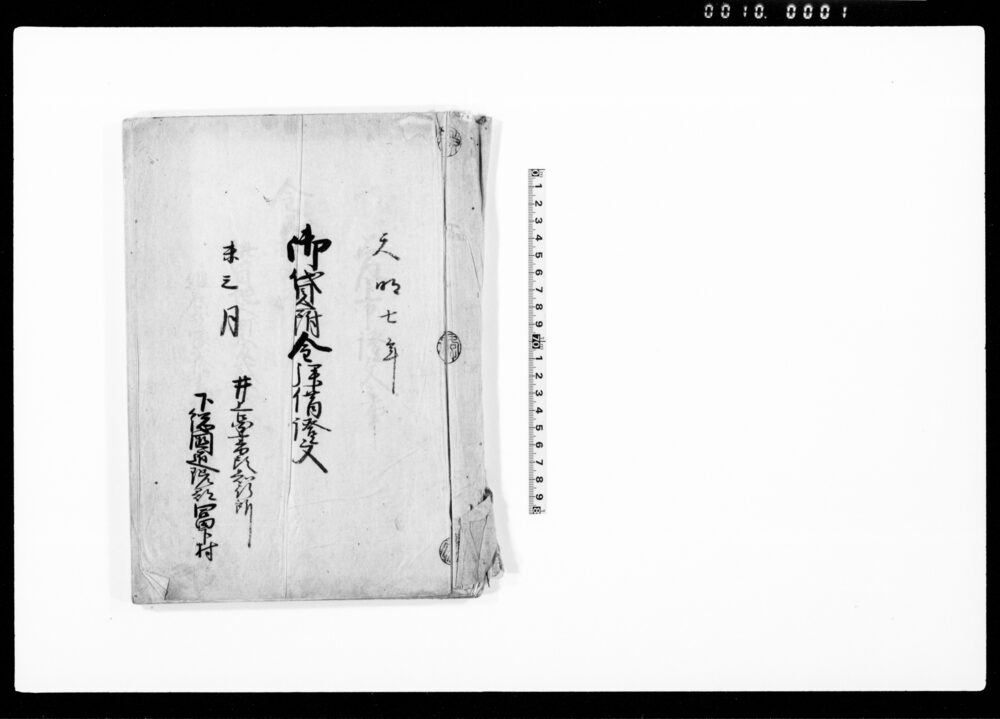 0010. 0001
天明七年
御貸附金拝借證文
未三月
井上
知行所
下総國
冨下村
0 1 2 3 4 5 6 7 8 9 10 1 2 3 4 5 6 7 8 9